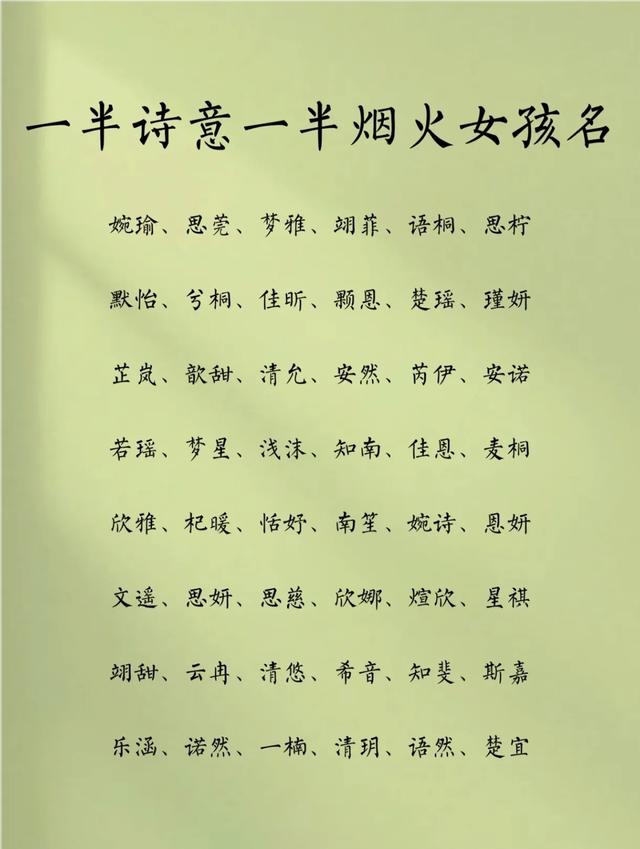 一半诗意一半烟火女孩名
婉瑜、思莞、梦雅、翊菲、语桐、思柠
默怡、兮桐、佳昕、颗恩、楚瑶、瑾妍
芷岚、歆甜、清允、安然、芮伊、安诺
若瑶、梦星、浅沫、知南、佳恩、麦桐
欣雅、杞暖、恬妤、南笙、婉诗、恩妍
文遥、思妍、思慈、欣娜、煊欣、星祺
翊甜、云冉、清悠、希音、知斐、斯嘉
乐涵、诺然、一楠、清玥、语然、楚宜